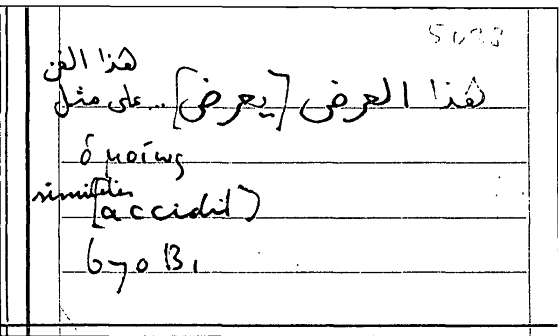 5693
هذا الفن
هذا العرض [يعرض] .. على مثل
ὁμοίως
similiter
[accidit]
670 B1